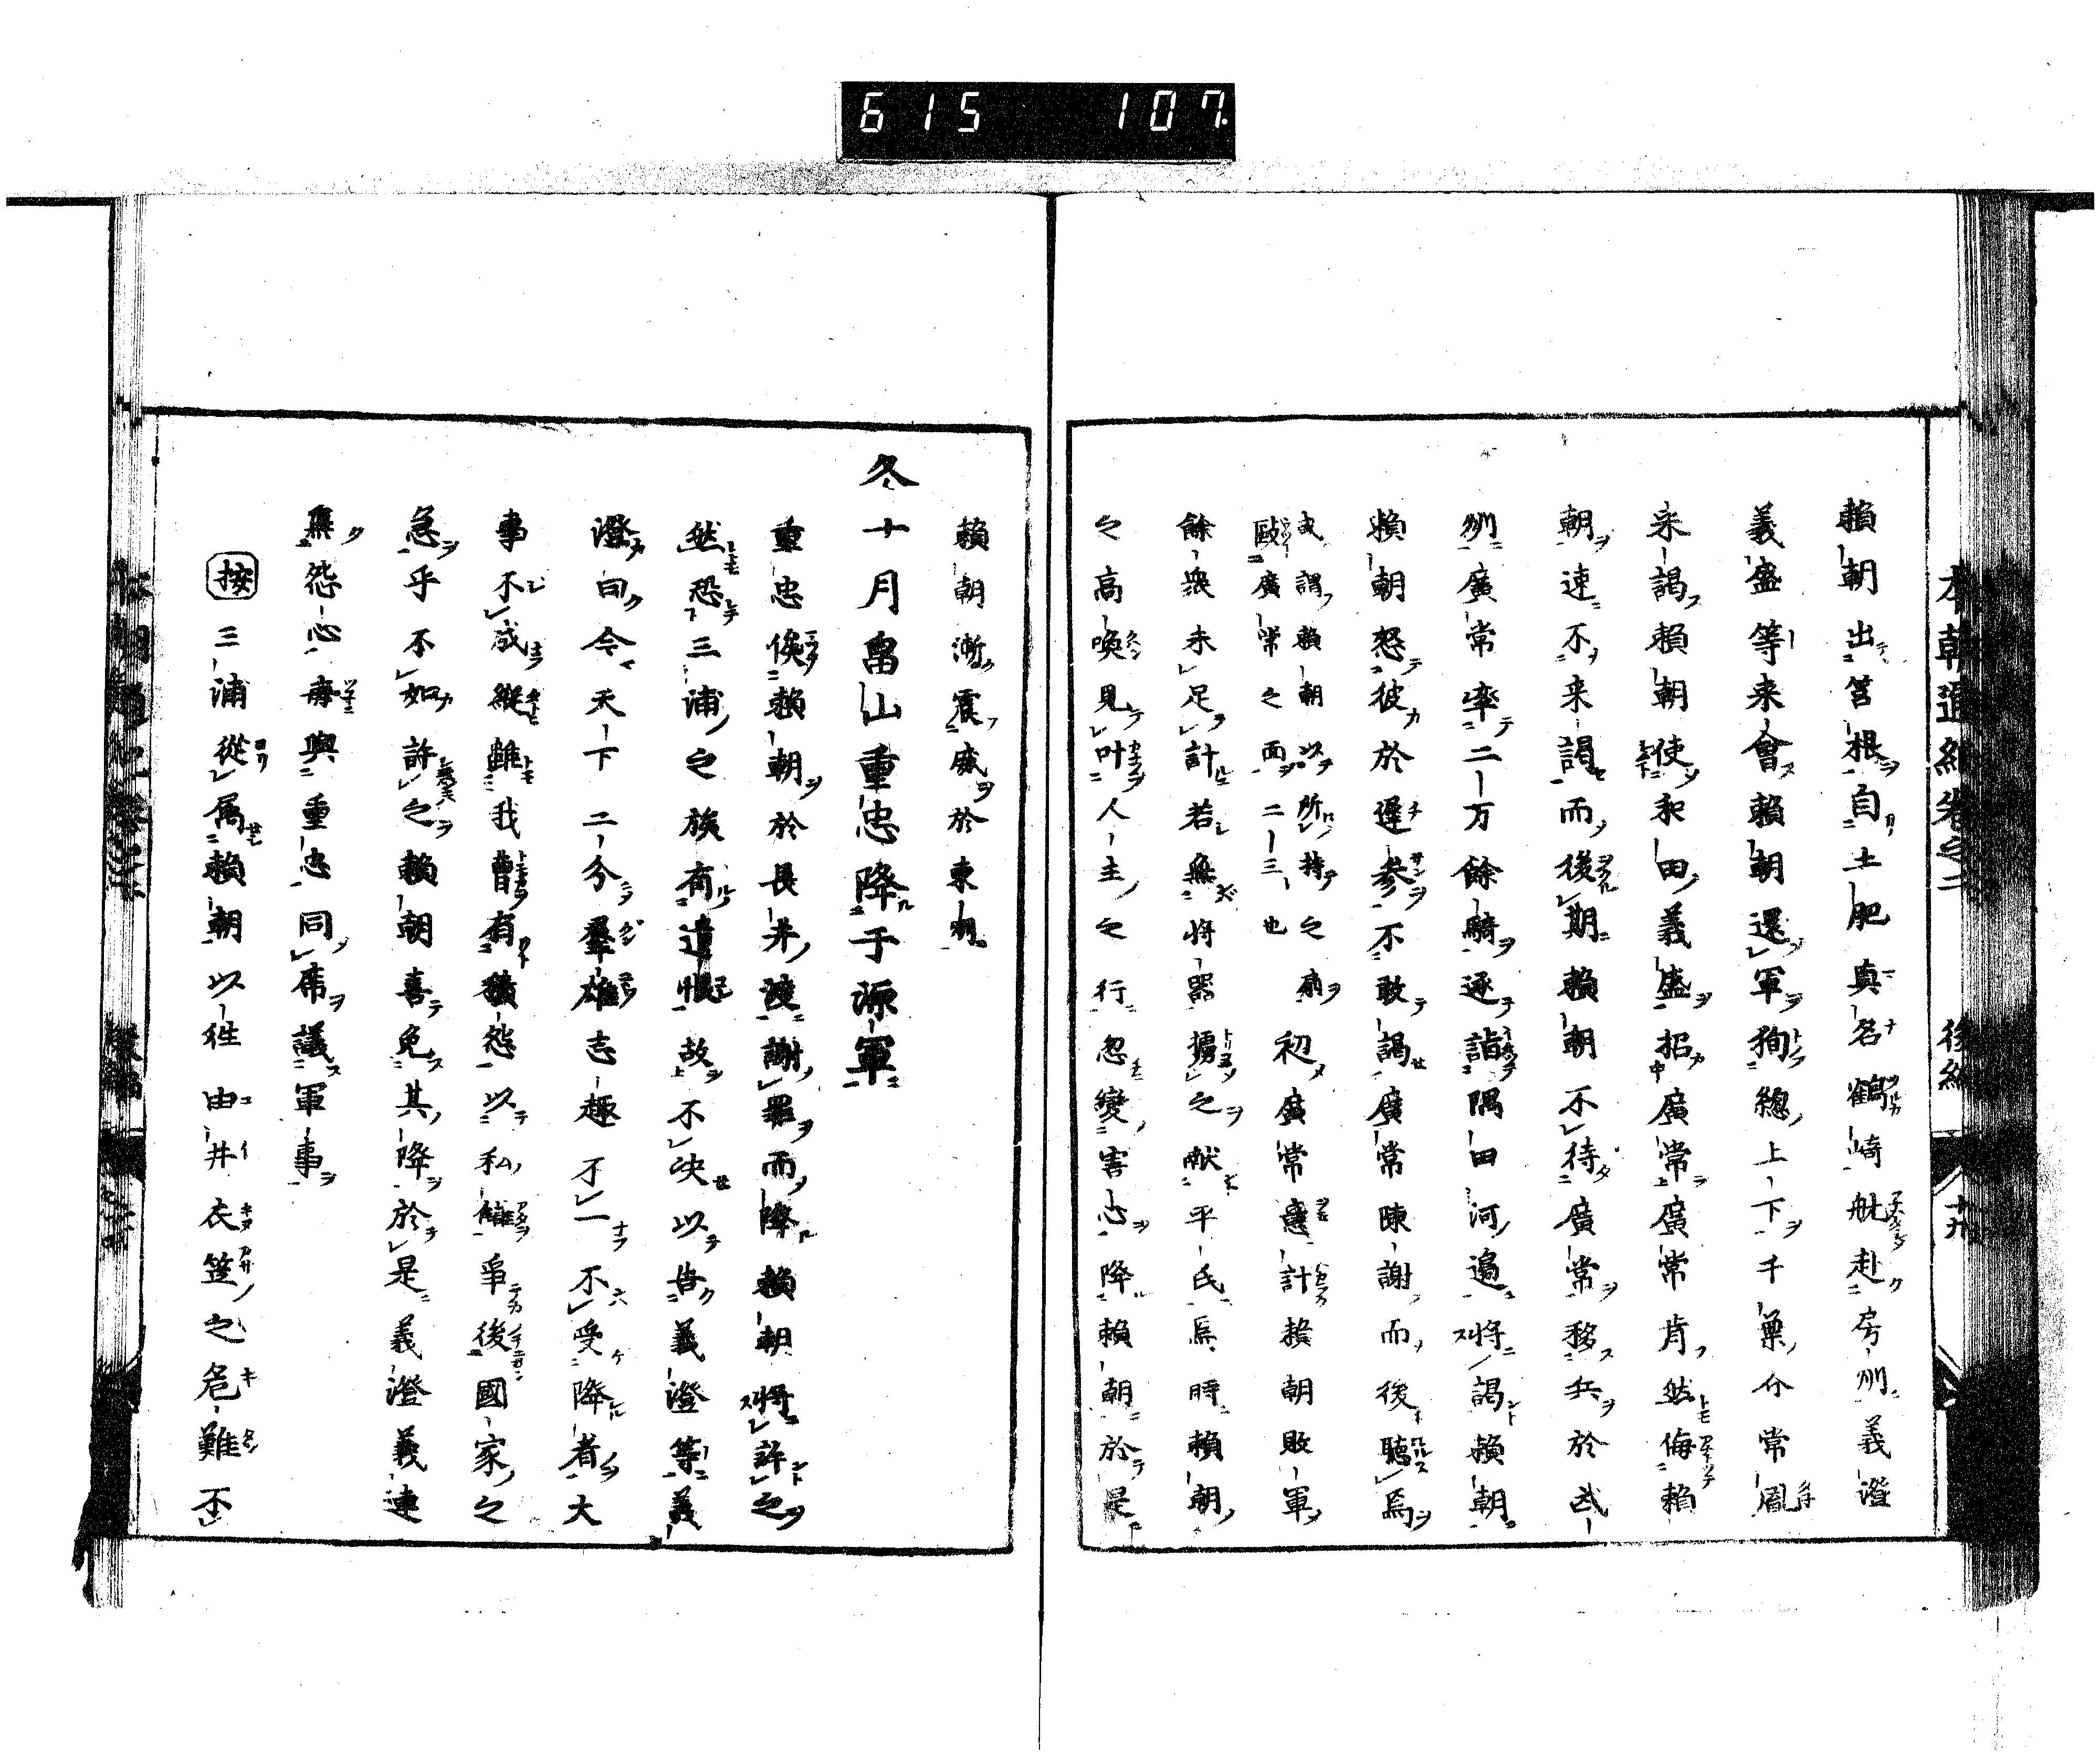 615 107
本朝通紀卷之二 後編 十九
賴朝出筥根自土肥真名鶴崎舩赴房州義澄
義盛等来會賴朝還軍狥總上下千葉介常胤
来謁賴朝使和田義盛招廣常廣常肯然侮賴
朝速不来謁而後期賴朝不待廣常移兵於武
州廣常率二万餘騎逐詣隅田河邉将謁賴朝
賴朝怒彼於遅參不敢謁廣常陳謝而後聴焉
或謂賴朝以所持之扇
毆廣常之面二三也
初廣常意計賴朝敗軍
餘衆未足計若無将器擄之献平氏焉時賴朝
之高喚見叶人主之行忽變害心降賴朝於是
賴朝漸震威於東州
冬十月畠山重忠降于源軍
重忠俟賴朝於長井渡謝罪而降賴朝将許之
然恐三浦之族有遺恨故不决以告義澄等義
澄曰今天下二分羣雄志趣不一不受降者大
事不成縱雖我曹有積怨以私讎爭後國家之
急乎不如許之賴朝喜免其降於是義澄義連
無怨心毎與重忠同席議軍事
按 三浦從属賴朝以徃由井衣笠之危難不